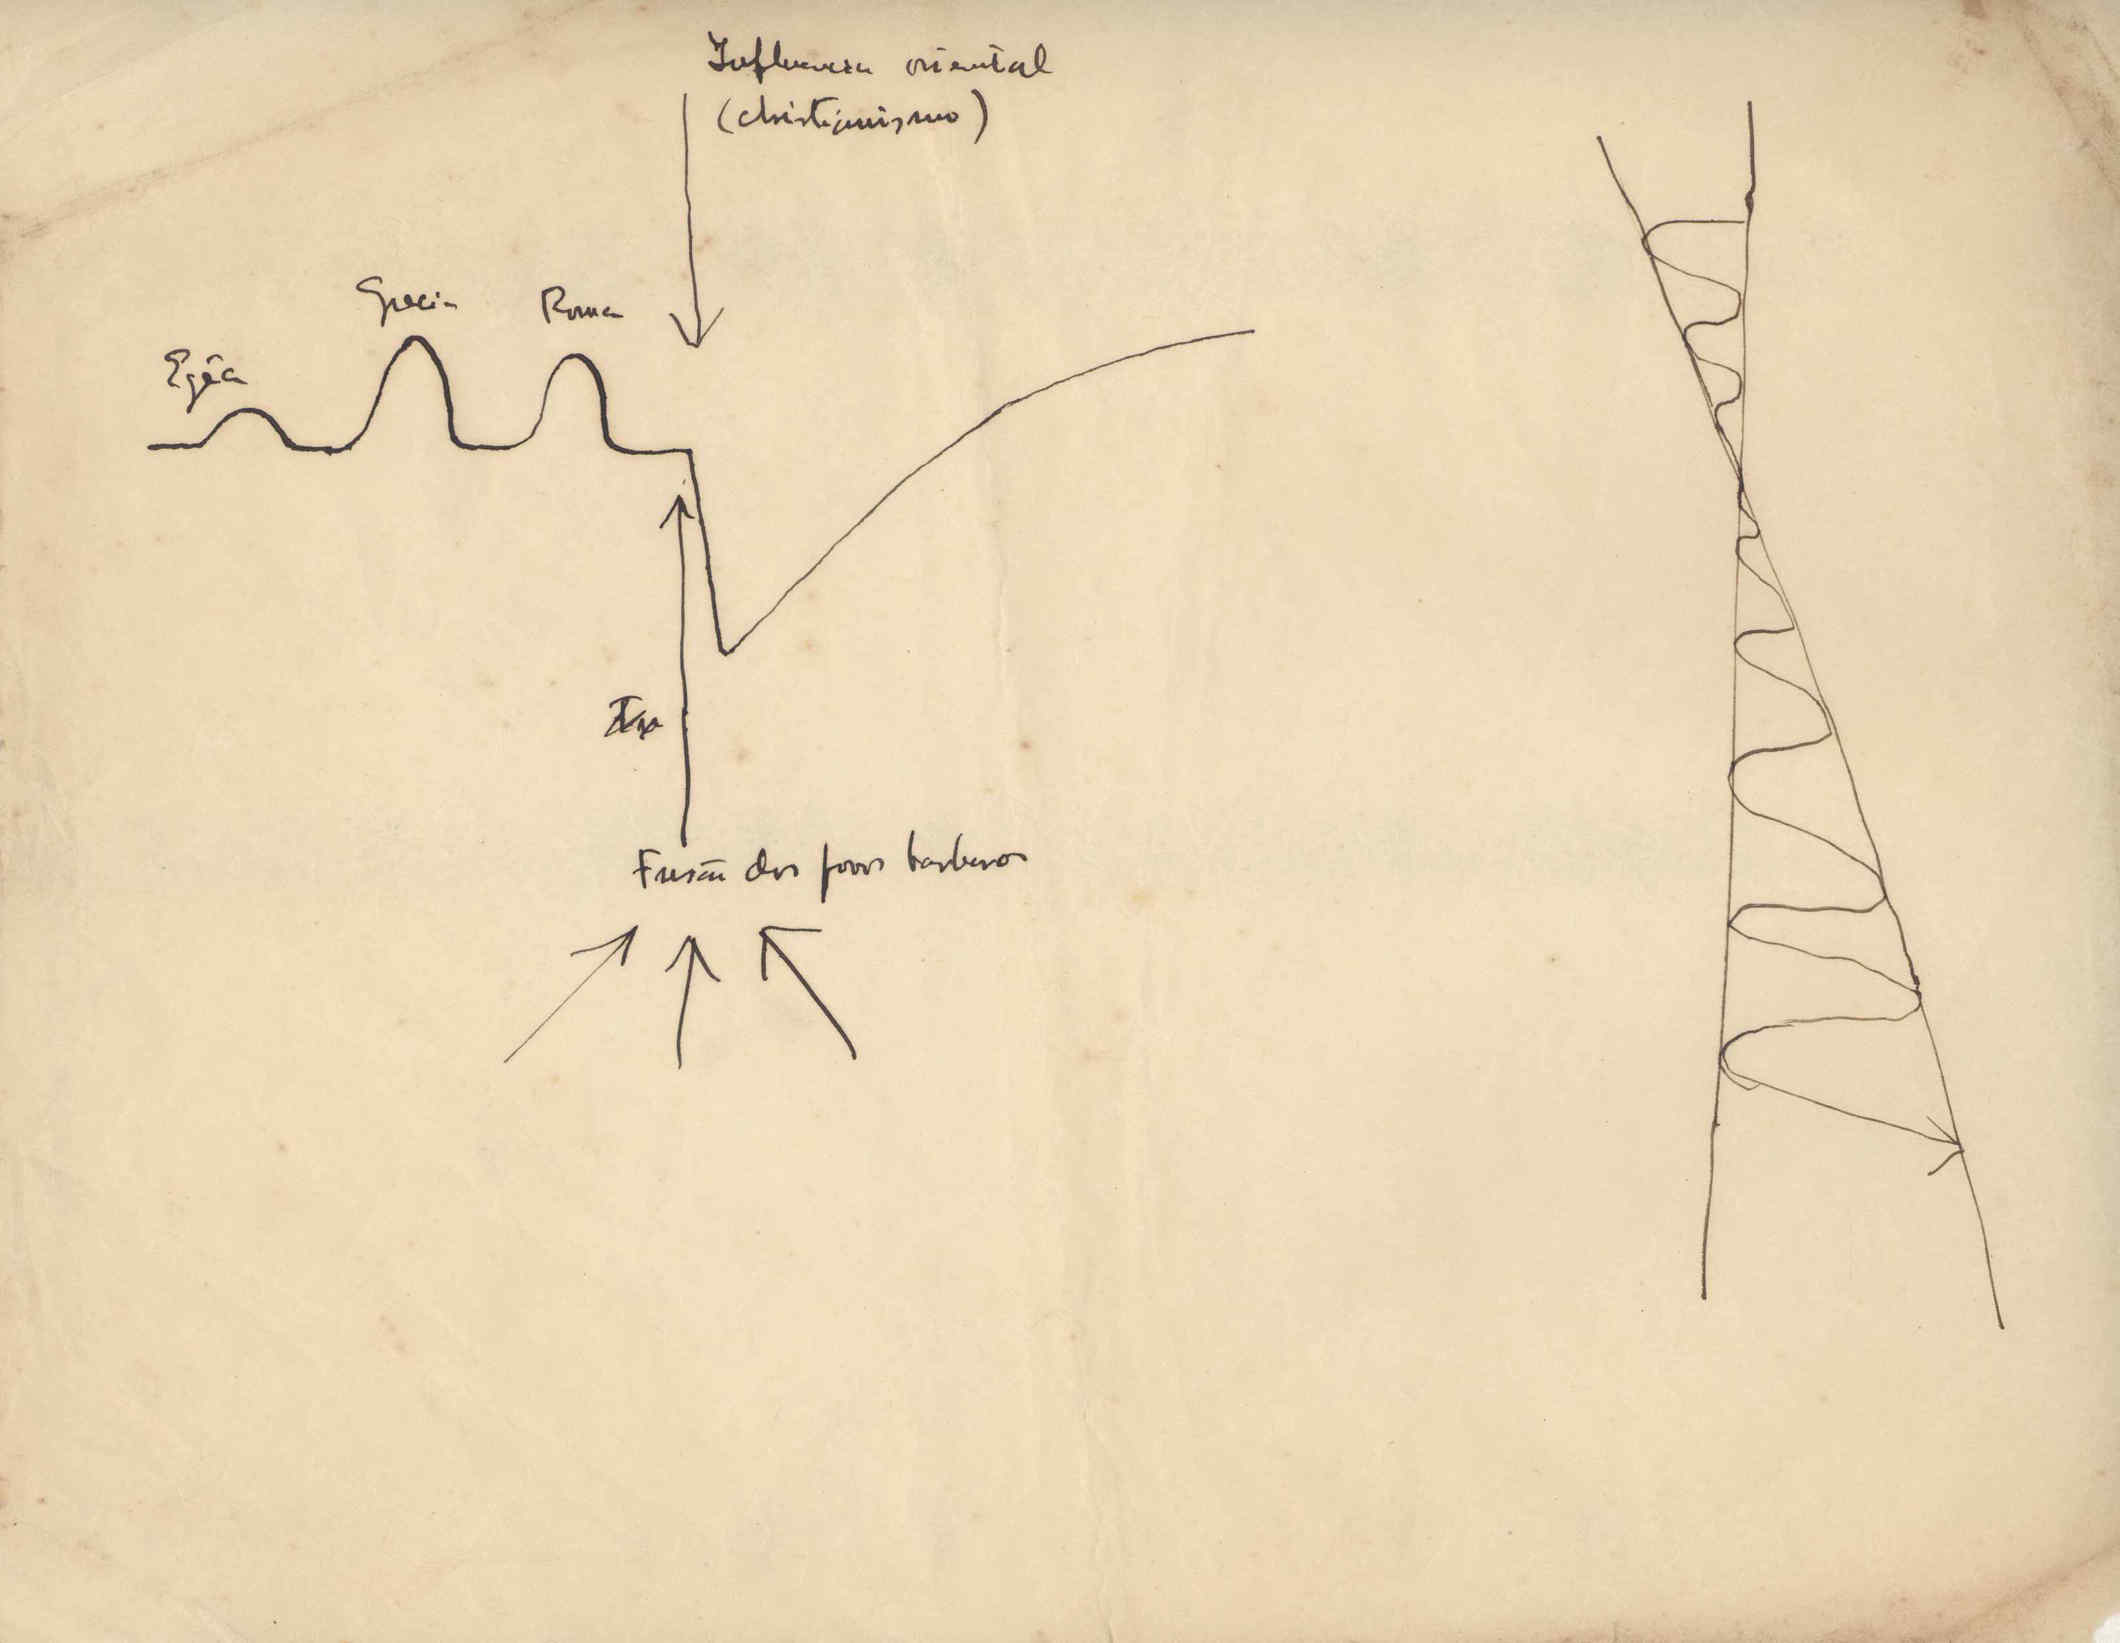 Influencia oriental
(christianismo)
Grecia
Roma
Egêa
Fusão dos povos barbaros